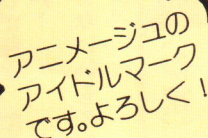 アニメージュの
アイドルマーク
です。よろしく!